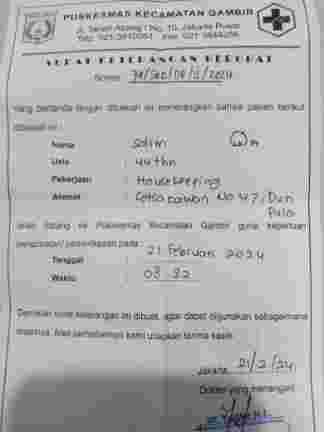 PUSKESMAS KECAMATAN GAMBIR
Jl. Tanah Abang I No. 10, Jakarta Pusat
SURAT KETERANGAN BEROBAT
Nomor
Yang bertanda tangan dibawah ini menerangkan bahwa pasien berikut
dibawah ini :
Nama : Salim
Usia : 44 thn
Pekerjaan : Housekeeping
Alamat : No 47, Duri
Pulo
telah datang ke Puskesmas Kecamatan Gambir guna keperluan
pengobatan/ pemeriksaan pada :
Tanggal : 21 Februari 2024
Waktu :
Demikian surat keterangan ini dibuat, agar dapat digunakan sebagaimana
mestinya. Atas perhatiannya kami ucapkan terima kasih.
Jakarta, 21/2/24
Dokter yang menangani